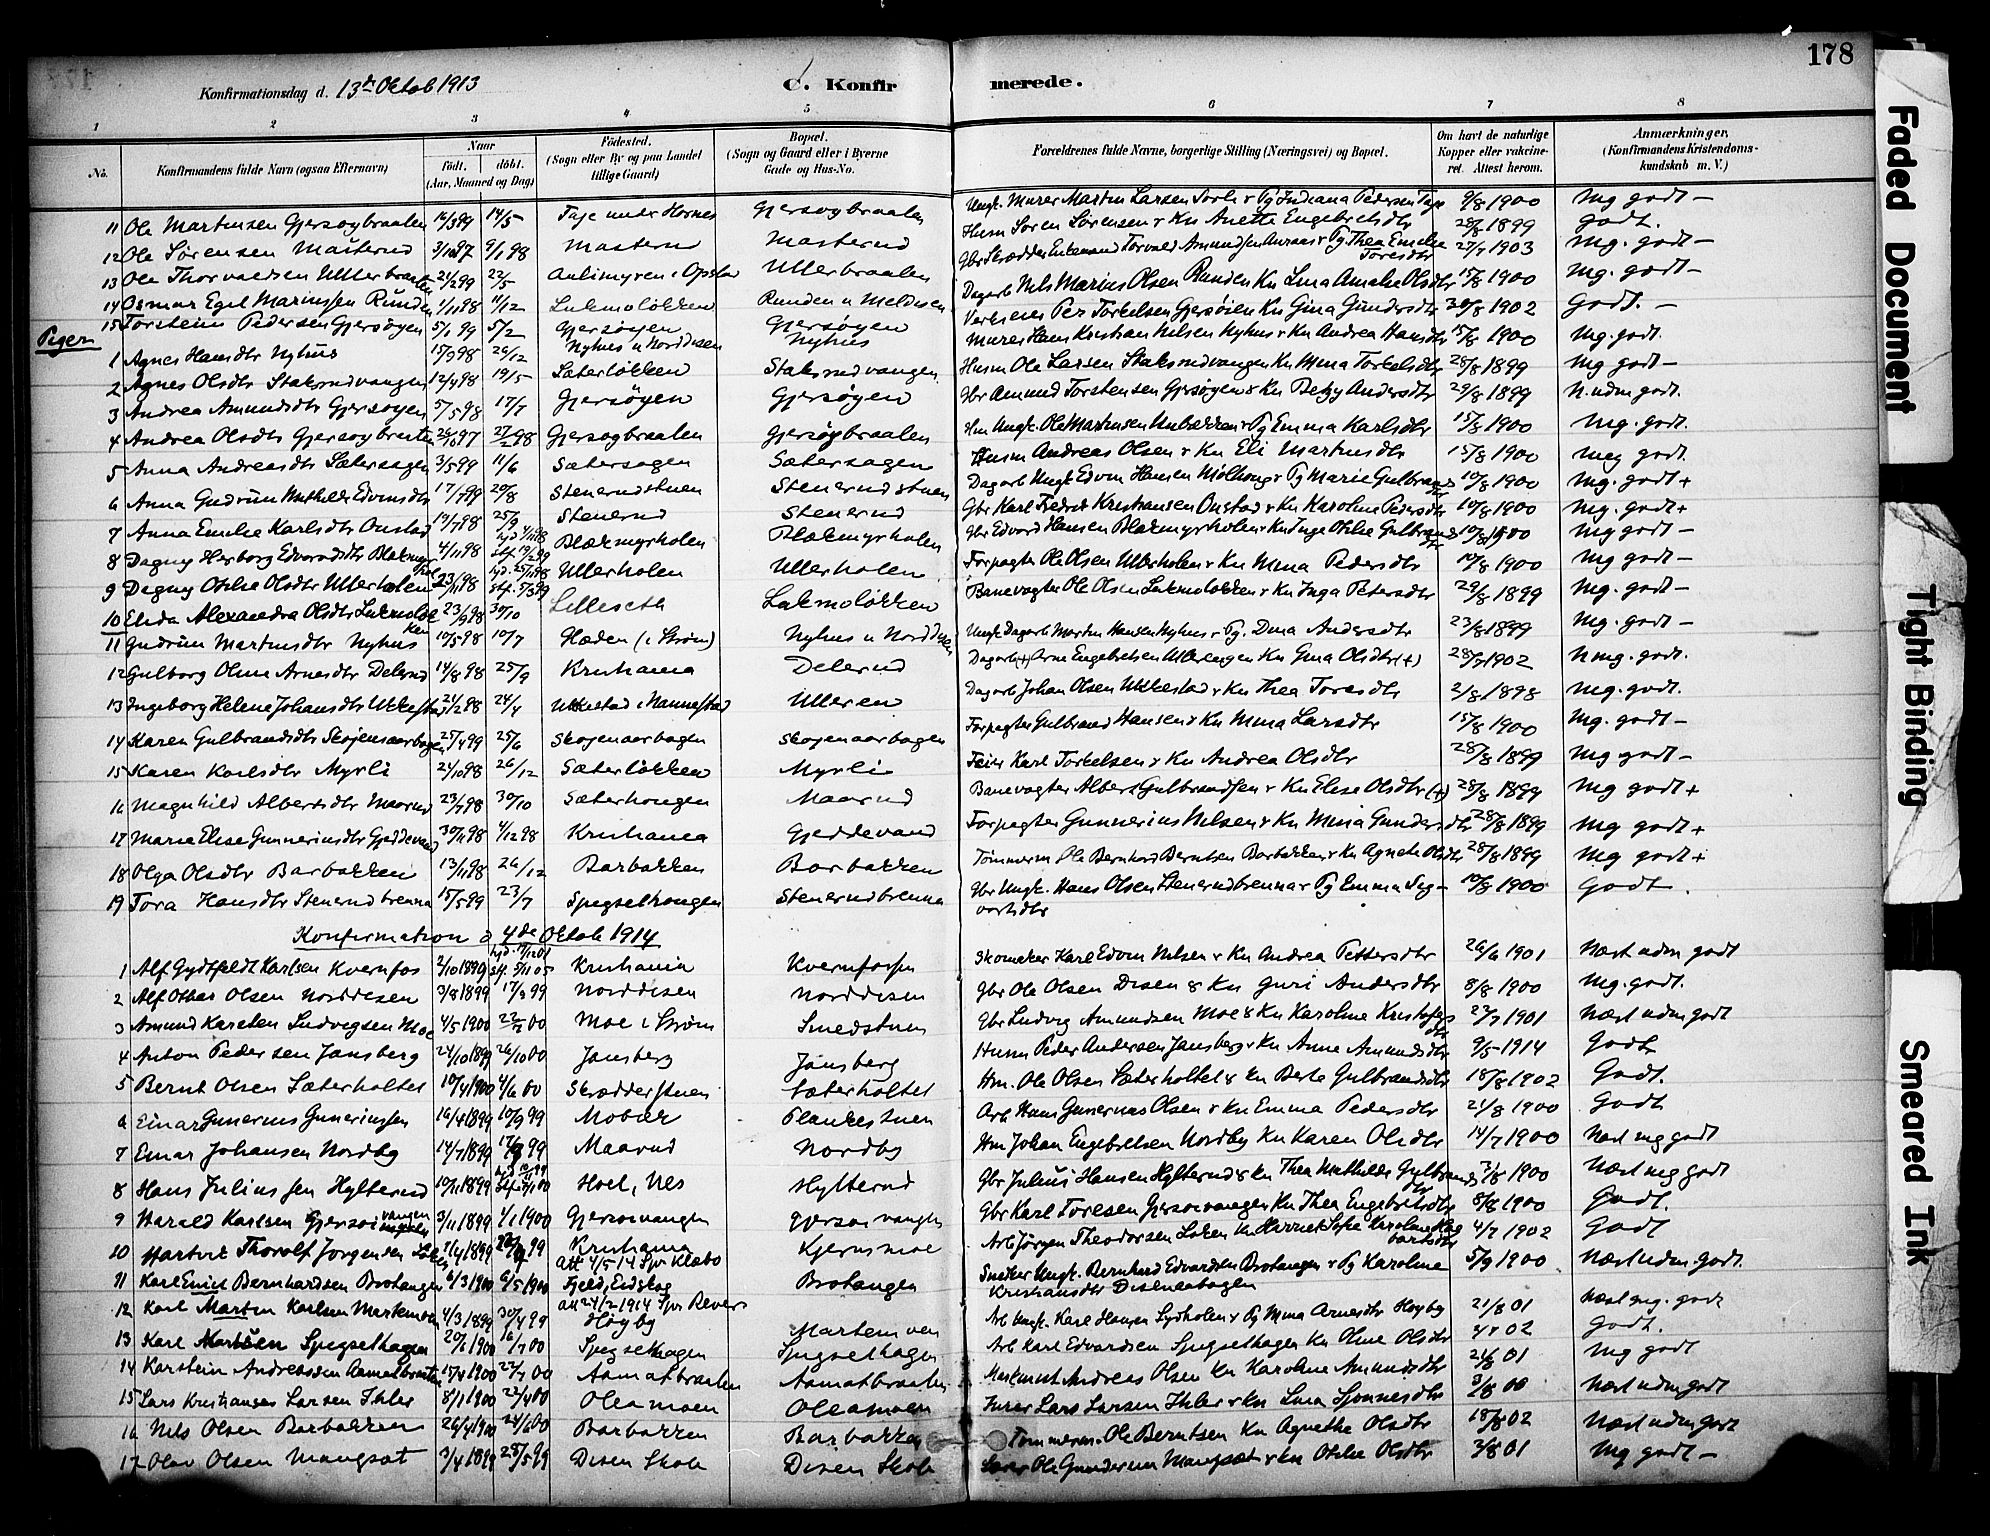 178
Konfirmationsdag d. 13de Oktob 1913
C. Konfirmerede.
1 2 3 4 5 6 7 8
No. Konfirmandens fulde Navn (ogsaa Efternavn) Naar født. døbt. (Aar, Maaned og Dag) Fødested. (Sogn eller By og paa Landet tillige Gaard) Bopæl. (Sogn og Gaard eller i Byerne Gade og Hus-No. Forældrenes fulde Navne, borgerlige Stilling (Næringsvei) og Bopæl. Om havt de naturlige Kopper eller vakcineret. Attest herom. Anmærkninger, (Konfirmandens Kristendomskundskab m. V.)
11 Ole Martinsen Gjersøybraaten 14/5 Gjersøybraaten Ungk. Murer Martin Larsen 9/8 1900 mg godt -
12 Ole Sørensen Masterud 3/10 97 9/1 98 Masterud Masterud Husm Søren Sørensen & Kn Anette Engebretsdtr 28/8 1899 godt.
13 Ole Thorvaldsen Ullerbraaten 21/2 99 22/5 Ullerbraaten 27/7 1903 mg. godt -
14 Osmar Egil Marinussen Runden 1/11 98 11/12 Lukmoløkken Dagarb Nils Marius Olsen Runden Kn Lina Amalie Olsdtr 15/8 1900 mg. godt -
15 Torstein Pedersen Gjersøyen 5/1 99 5/2 Gjersøyen Gjersøyen Per Torkelsen Gjersøien Kn Gina Gundersdtr 30/8 1902 godt. -
Piger
1 Agnes Hansdtr Nyhus 15/9 98 26/12 Nyhus u Norddisen Nyhus Murer Hans Kristian Nilsen Nyhus & Kn Andrea Hansdtr 15/8 1900 mg. godt.
2 Agnes Olsdtr Staksrudvangen 12/4 98 19/5 Sæterløkken Staksrudvangen Husm Ole Larsen Staksrudvangen Kn Mina Torkelsdtr 28/8 1899 mg godt -
3 Andrea Amundsdtr Gjersøyen 5/5 98 17/7 Gjersøyen Gjersøyen Gbr Amund Torstensen Gjersøyen & Kn Betzy Andersdtr 29/8 1899 N. udm godt.
4 Andrea Olsdtr Gjersøybraaten 26/10 97 27/2 98 Gjersøybraaten Gjersøybraaten Ungk. Ole Martinsen & Pg Emma Karlsdtr 15/8 1900 mg. godt.
5 Anna Andreasdtr Sætersagen 3/5 99 11/6 Sætersagen Sætersagen Husm Andreas Olsen & Kn Eli Martinsdtr 15/8 1900 meg godt.
6 Anna Gudrun Mathilde Edvinsdtr 17/7 99 20/8 Stenerudstuen Stenerudstuen Dagarb Ungk Edvin Hansen & Pg Marie Gulbrandsdtr 10/8 1900 mg. godt +
7 Anna Emelie Karlsdtr Onstad 19/7 98 25/9 Stenerud Stenerud Gbr Karl Fredrik Kristiansen Onstad & Kn Karoline Pedersdtr 10/8 1900 mg. godt +
8 Dagny Herborg Edvardsdtr 4/11 98 Blækmyrholen Blækmyrholen Gbr Edvard Hansen Blækmyrholen & Kn Inga Otilie Gulbrandsdtr 10/8 1900 mg godt -
9 Dagny Otilie Olsdtr Ullerholen 23/11 98 Ullerholen Ullerholen Forpagter Ole Olsen Ullerholen & Kn Mina Pedersdtr 10/8 1900 mg godt -
10 Elida Alexandra Olsdtr Lukmoløkken 23/9 98 30/10 Lilleseth Lukmoløkken Banevogter Ole Olsen Lukmoløkken & Kn Inga Petersdtr 29/8 1899 mg. godt -
11 Gudrun Martinsdtr Nyhus 10/5 98 10/7 Hæden (i Strøm) Nyhus u Norddisen Ungk Dagarb Martin Hansen Nyhus & Pg. Dina Andersdtr 23/8 1899 mg. godt -
12 Gulborg Oline Arnesdtr Delerud 14/8 98 25/9 Kristiania Delerud Dagarb (+) Arne Engebretsen Ullerengen Kn Gina Olsdtr (+) 28/7 1902 N mg. godt.
13 Ingeborg Helene Johansdtr Ukkestad 21/2 98 24/4 Ukkestad i Nannestad Ulleren Dagarb Johan Olsen Ukkestad & Kn Thea Toresdtr 2/8 1898 mg. godt.
14 Karen Gulbrandsdtr Skøjenaarbogen 25/4 99 25/6 Skøjenaarbogen Skøjenaarbogen Forpagter Gulbrand Hansen & Kn Mina Larsdtr 15/8 1900 mg. godt -
15 Karen Karlsdtr Myrli 24/10 98 26/12 Sæterløkken Myrli Feier Karl Torkelsen & Kn Andrea Olsdtr 28/8 1899 mg godt -
16 Magnhild Albertsdtr Maarud 23/7 98 30/10 Sæterhaugen Maarud Banevogter Albert Gulbrandsen & Kn Elise Olsdtr (+) 28/8 1899 mg godt +
17 Marie Elise Gunneriusdtr Gjeddevand 30/1 98 4/12 98 Kristiania Gjeddevand Forpagter Gunnerius Nilsen & Kn Mina Gundersdtr 28/8 1899 mg godt +
18 Olga Olsdtr Barbakken 13/11 98 26/12 Barbakken Barbakken Tømmerm Ole Bernhard Berntsen Barbakken & Kn Agnete Olsdtr 28/8 1899 mg godt +
19 Tora Hansdtr Stenerudbrenna 15/5 99 23/7 Spigsethaugen Stenerudbrenna Gbr Ungk. Hans Olsen Stenerudbrenna & Pg Emma Sigvartsdtr 10/8 1900 Godt.
Konfirmation d 4de Oktob 1914
1 Alf Gydtfeldt Karlsen Kvernfos 2/10 1899 Kristiania Kvernfossen Skomaker Karl Edvin Nilsen & Kn Andrea Pettersdtr 26/6 1901 Næst udm godt
2 Alf Otbar Olsen Norddisen 3/8 1899 17/9 99 Norddisen Norddisen Gbr Ole Olsen Disen & Kn Guri Andersdtr 8/8 1900 Mg. godt.
3 Amund Karsten Ludvigsen Moe 4/5 1900 22/7 00 Moe i Strøm Smedstuen Gbr Ludvig Amundsen Moe & Kn Karoline Kristofersdtr 22/7 1901 Næst udm godt
4 Anton Pedersen Jansberg 24/10 1899 26/10 00 Jansberg Jansberg Husm Peder Andersen Jansberg & Kn Anne Amundsdtr 9/5 1914 Godt
5 Bernt Olsen Sæterholtet 10/4 1900 4/6 00 Skrædderstuen Sæterholtet Hm. Ole Olsen Sæterholtet & Kn Berte Gulbrandsdtr 18/8 1902 Godt.
6 Einar Gunerius Guneriussen 16/4 1899 10/9 99 Mobæk Plankestuen Arb Hans Gunerius Olsen & Kn Emma Pedersdtr 21/8 1900 Godt
7 Einar Johansen Nordby 14/7 1899 17/9 99 Maarud Nordby Hm Johan Engebretsen Nordby Kn Karen Olsdtr 14/7 1900 Næst mg godt
8 Hans Juliussen Hylterud 10/11 1899 Hoel, Nes Hylterud Gbr Julius Hansen Hylterud & Kn Thea Mathilde Gulbrandsdtr 3/8 1900 Næst meg godt
9 Harald Karlsen Gjersøivangen 3/11 1899 1/1 1900 Gjersøivangen Gjersøivangen Gbr Karl Toresen Gjersøivangen Kn Thea Engebretsdtr 8/8 1900 Godt.
10 Hartvik Thorolf Jørgensen 1/4 1899 Kristiania att 4/5 14 Spr Klæbo Kjernsmoe Arb Jørgen Theodorsen Kn Harriet Sofie Karoline 4/7 1902 Godt
11 Karl Emil Bernhardsen Brotangen 6/3 1900 6/5 1900 Fjeld, Eidskog Brotangen Snekker Ungk. Bernhard Edvardsen Brotangen & Pg Karoline Kristiansdtr Disenaabogen 5/9 1900 Næst udm. godt.
12 Karl Martin Karlsen Martemoen 4/3 1899 30/4 99 att 24/2 1914 Spr Høyby Martemoen Arb Ungk. Karl Hansen Sydholen & Pg Mina Arnesdtr Høyby 21/8 01 Næst mg. godt
13 Karl Spigsethagen 20/6 1900 16/7 00 Spigsethagen Spigsethagen Arb Karl Edvardsen Spigsethagen Kn Oline Olsdtr 02 Godt.
14 Karstein Andreassen Aamotbraaten 15/4 1900 22/7 00 Aamotbraaten Aamotbraaten Andreas Olsen Kn Karoline Amundsdtr 21/8 01 mg godt
15 Lars Kristianses Larsen Ihler 8/1 1900 22/4 00 Oleamoen Oleamoen Lars Larsen Ihler & Kn Lina 3/8 00 Næst udm godt
16 Nils Olsen Barbakken 26/4 1900 24/6 00 Barbakken Barbakken Tømmerm. Ole Berntsen Kn Agnethe Olsdtr 18/8 02 Næst udm godt
17 Olav Olsen Mangsæt 3/4 1899 28/5 99 Disen Skole Disen Skole Lærer Ole Gundersen Mangsæt & Kn Otilie Olsdtr 3/8 01 Mg godt -
Faded Document
Tight Binding
Smeared Ink